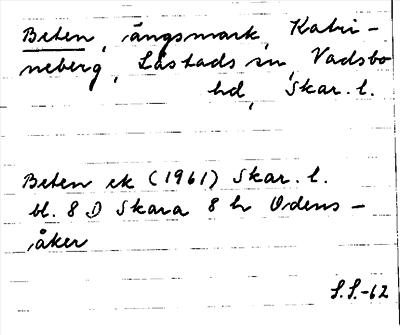 Beten, ängsmark, Katri-
neberg, Låstads sn, Vadsbo
hd, Skar. l.
Beten ek (1961) Skar. l.
bl. 8 D Skara 8 h Odens-
åker
S.S.-62